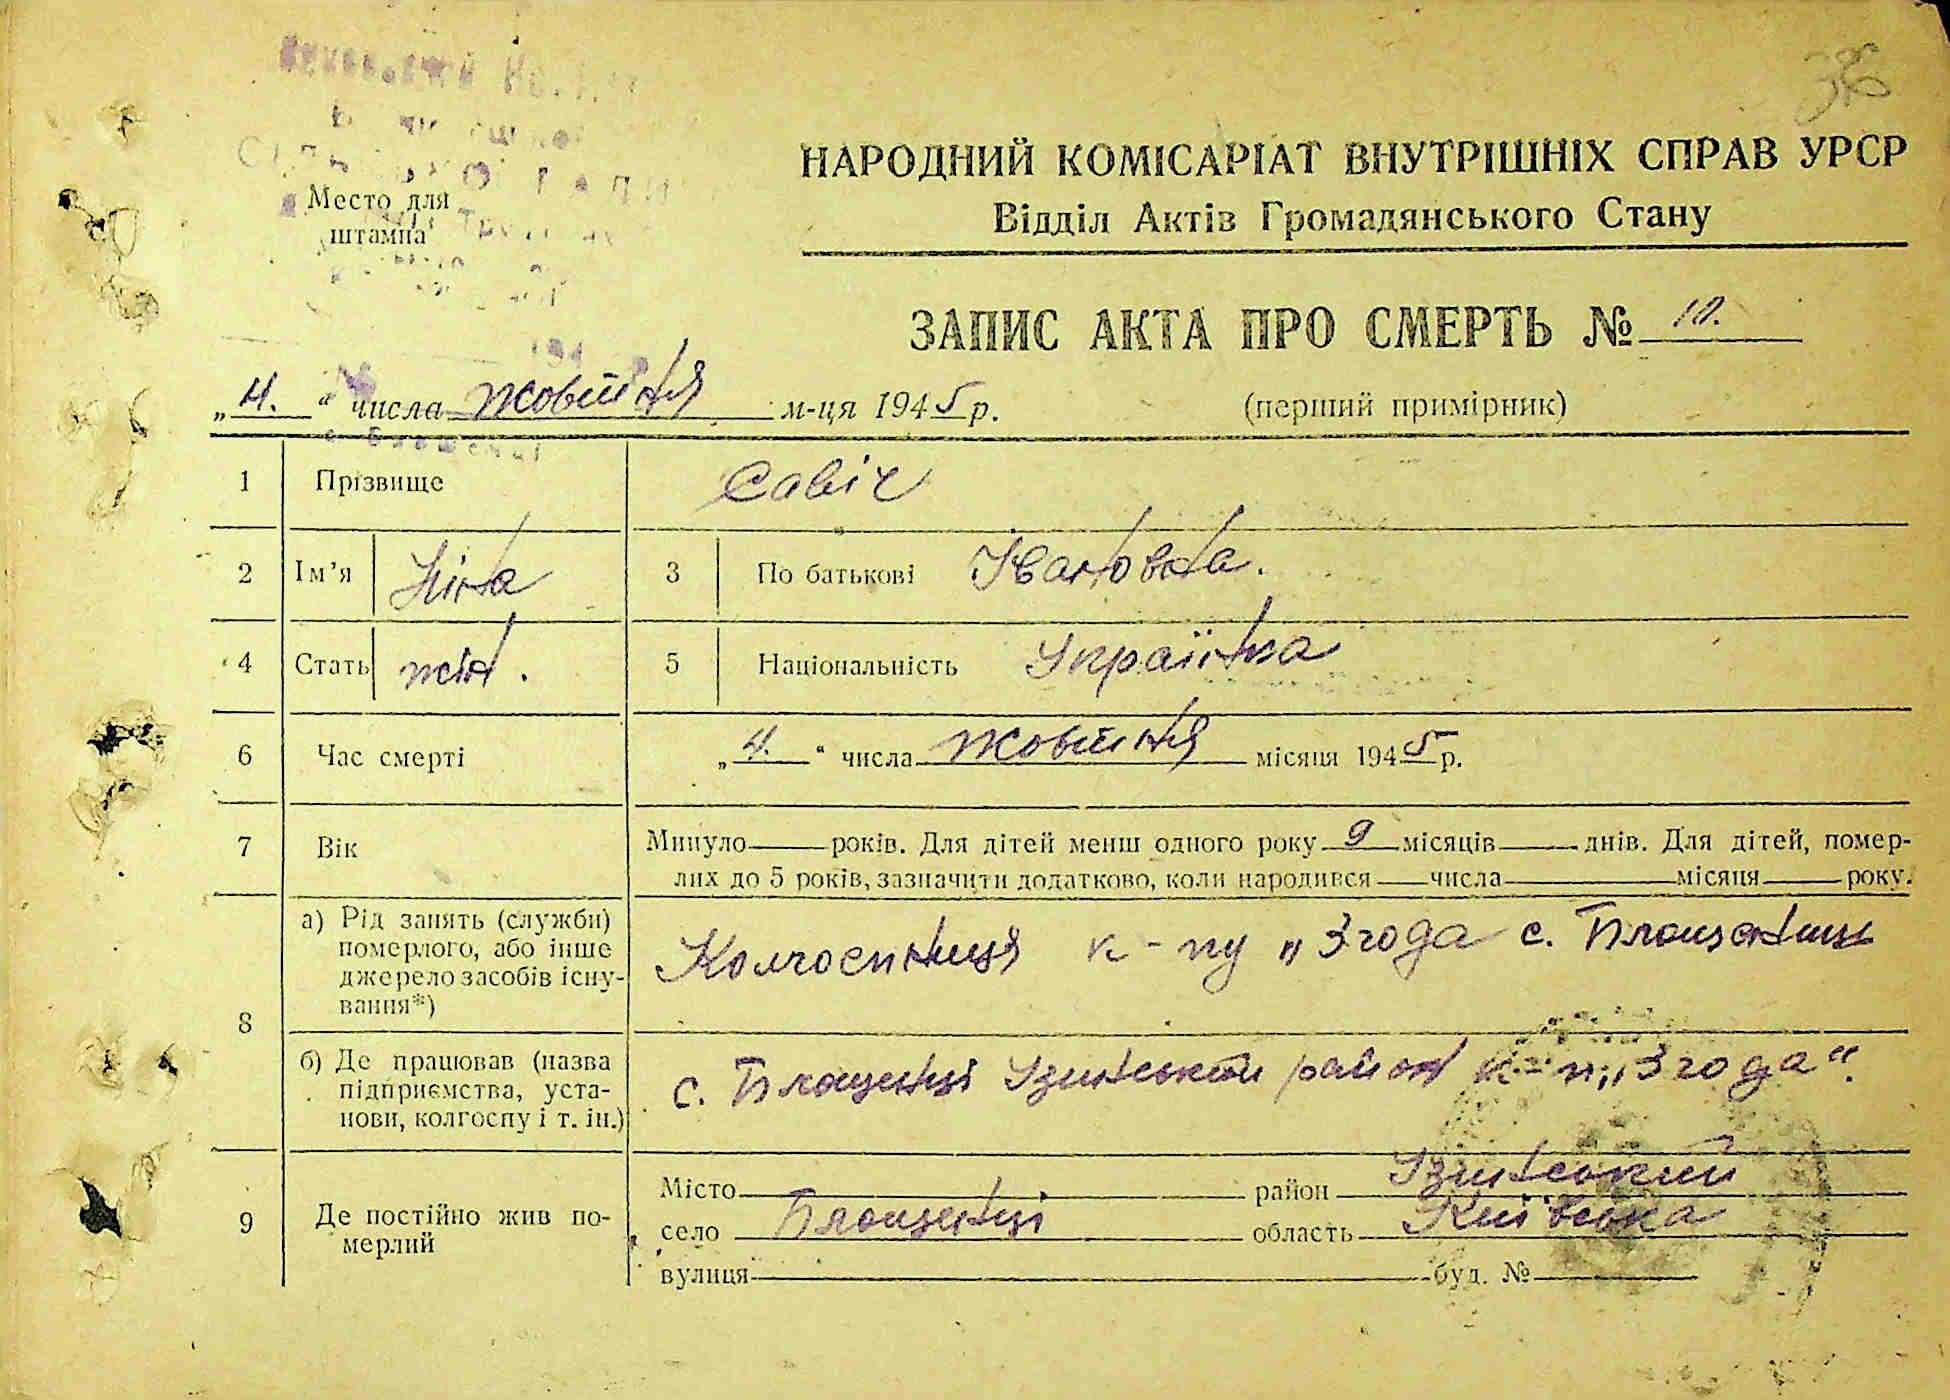 36
НАРОДНИЙ КОМІСАРІАТ ВНУТРІШНІХ СПРАВ УРСР
Відділ Актів Громадянського Стану
Место для
штампа
ЗАПИС АКТА ПРО СМЕРТЬ № 10.
„4.“ числа жовтня м-ця 1945 р.
(перший примірник)
1 Прізвище Савіч
2 Ім'я Ніна 3 По батькові Івановна.
4 Стать жін. 5 Національність Українка
6 Час смерті „4.“ числа жовтня місяця 1945 р.
7 Вік Минуло року років. Для дітей менш одного року 9 місяців днів. Для дітей, помер-
лих до 5 років, зазначити додатково, коли народився числа місяця року.
8 а) Рід занять (служби)
померлого, або інше
джерело засобів існу-
вання*)
Колгоспниця к-пу „Згода с. Блощинці
б) Де працював (назва
підприємства, уста-
нови, колгоспу і т. ін.)
с. Блощинці Узинський район к-п „Згода“.
9 Де постійно жив по-
мерлий
Місто район Узинський
село Блощинці область Київська
вулиця буд. №